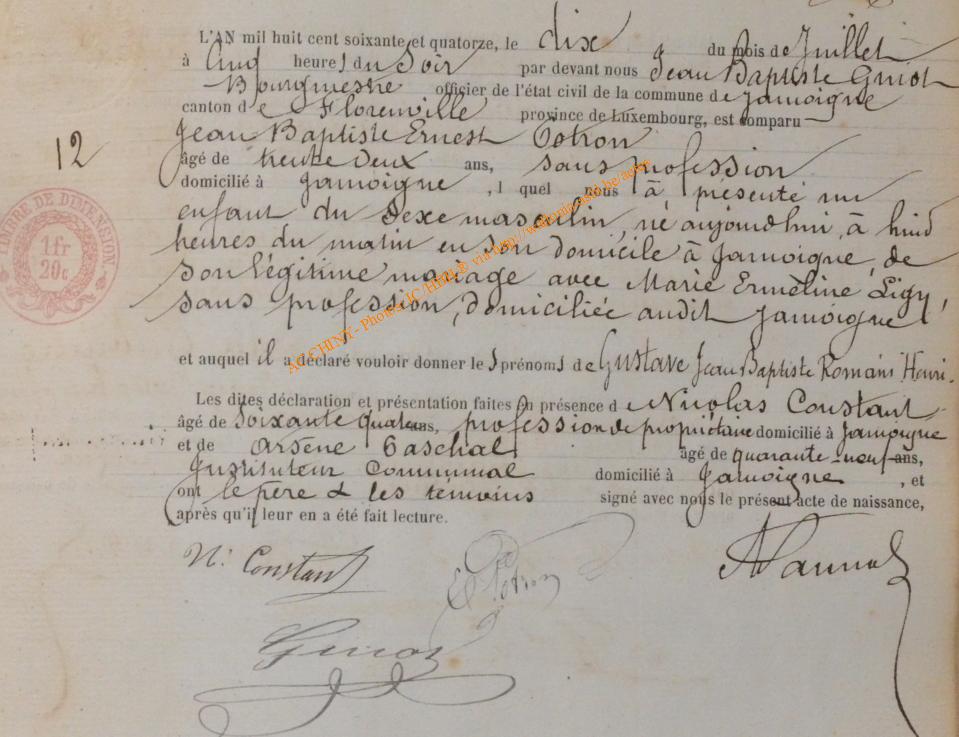 L'AN mil huit cent soixante et quatorze, le dix du mois de Juillet
à Cinq heures du Soir par devant nous Jean Baptiste Guiot
Bourgmestre officier de l'état civil de la commune de Jamoigne
canton de Florenville province de Luxembourg, est comparu
Jean Baptiste Ernest
12
âgé de trente deux ans, sans profession
domicilié à Jamoigne, l quel nous à présenté un
enfant du Sexe masculin, né aujourdhui, à huit
heures du matin en son domicile à Jamoigne, de
son légitime mariage avec Marie Ermeline Ligy,
sans profession, domiciliée audit Jamoigne
TIMBRE DE DIMENSION
1 fr
20c
et auquel il a déclaré vouloir donner les prénoms de Gustave Jean Baptiste Romain Henri.
Les dites déclaration et présentation faites en présence de Nicolas Constant
âgé de Soixante quatre ans, profession de propriétaire domicilié à Jamoigne
et de Arsène âgé de quarante-neuf ans,
Instituteur Communal domicilié à Jamoigne, et
ont le père & les témoins signé avec nous le présent acte de naissance,
après qu'il leur en a été fait lecture.
N. Constant
Guiot